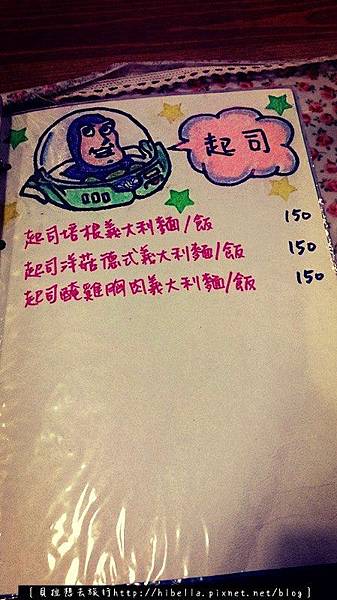 起司
起司培根義大利麵/飯 150
起司洋菇德式義大利麵/飯 150
起司醃雞胸肉義大利麵/飯 150
[貝拉想去旅行http://hibella.pixnet.net/blog]